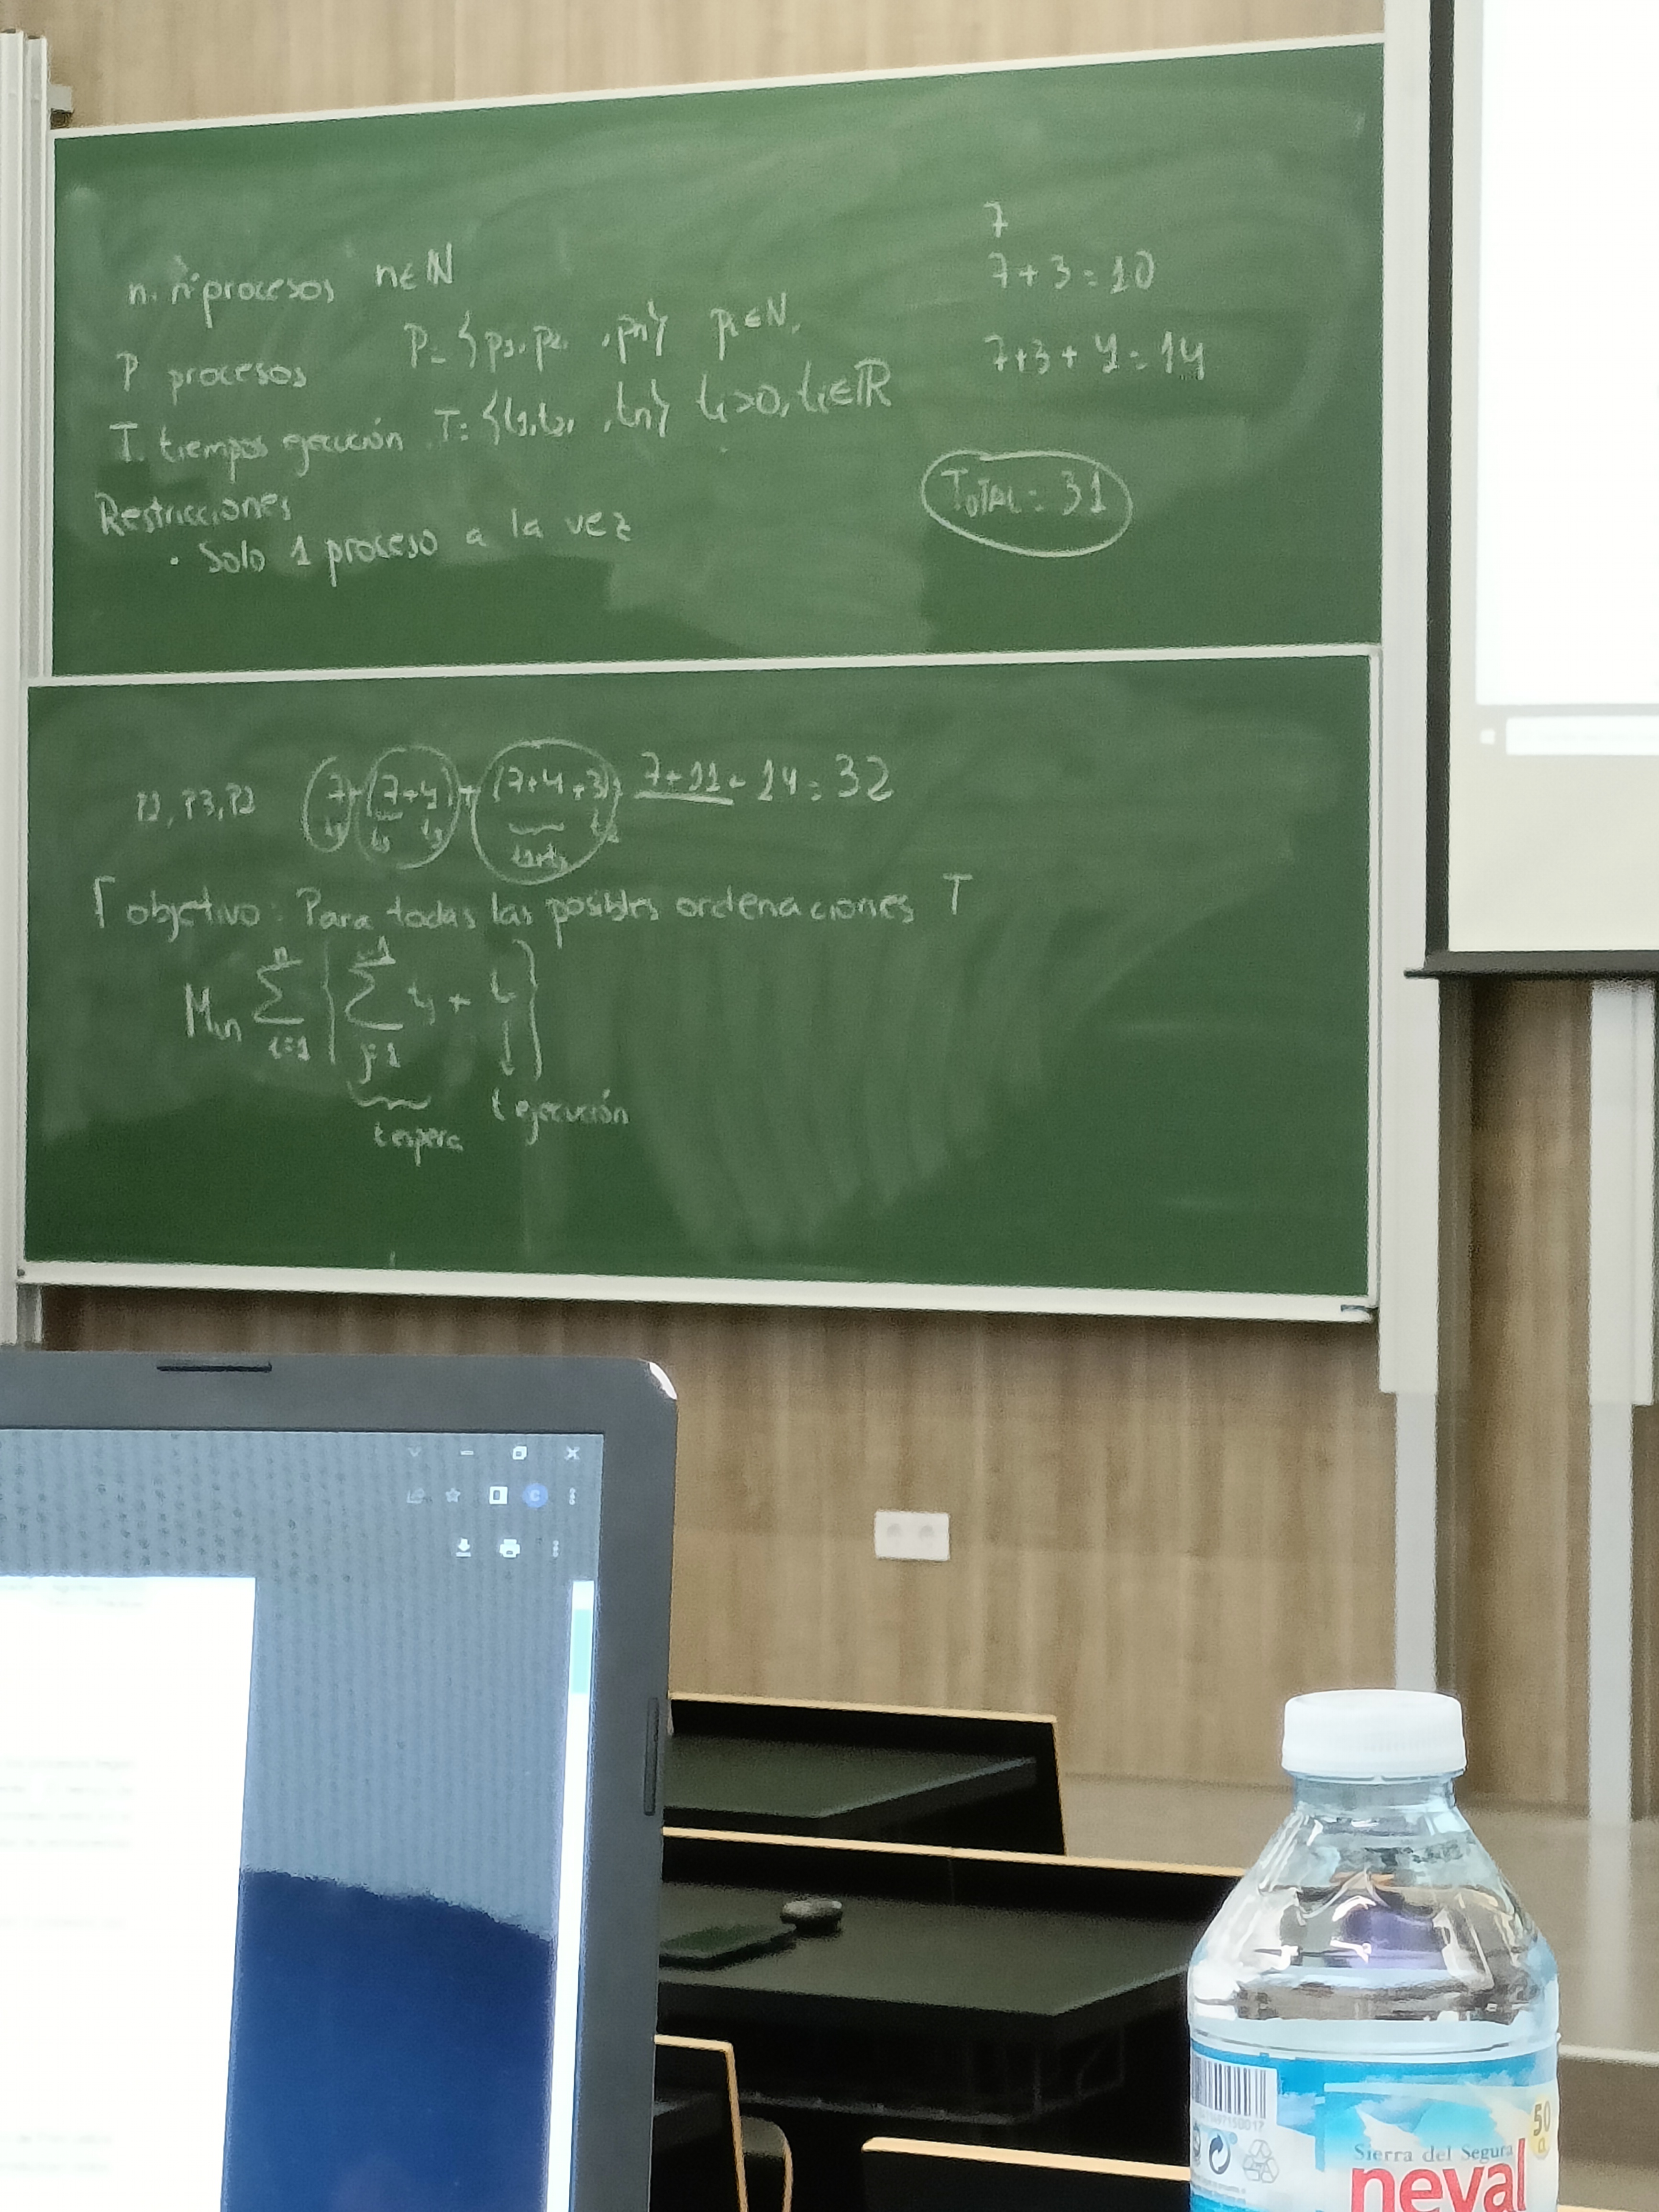 n: nº procesos n∈ℕ
P procesos P= {p1, p2, , pn} pi∈N,
T. tiempos ejecución T= {t1,t2, ,tn} ti>0, ti∈ℝ
Restricciones
· Solo 1 proceso a la vez
7
7+3=10
7+3+4=14
TOTAL = 31
P1, P3, P2 7+(7+4)+(7+4+3)= 7+11+14=32
F objetivo: Para todas las posibles ordenaciones T
Min Σ i=1 n { Σ j=1 i-1 tj + ti }
t espera
t ejecución
Sierra del Segura
neval
50